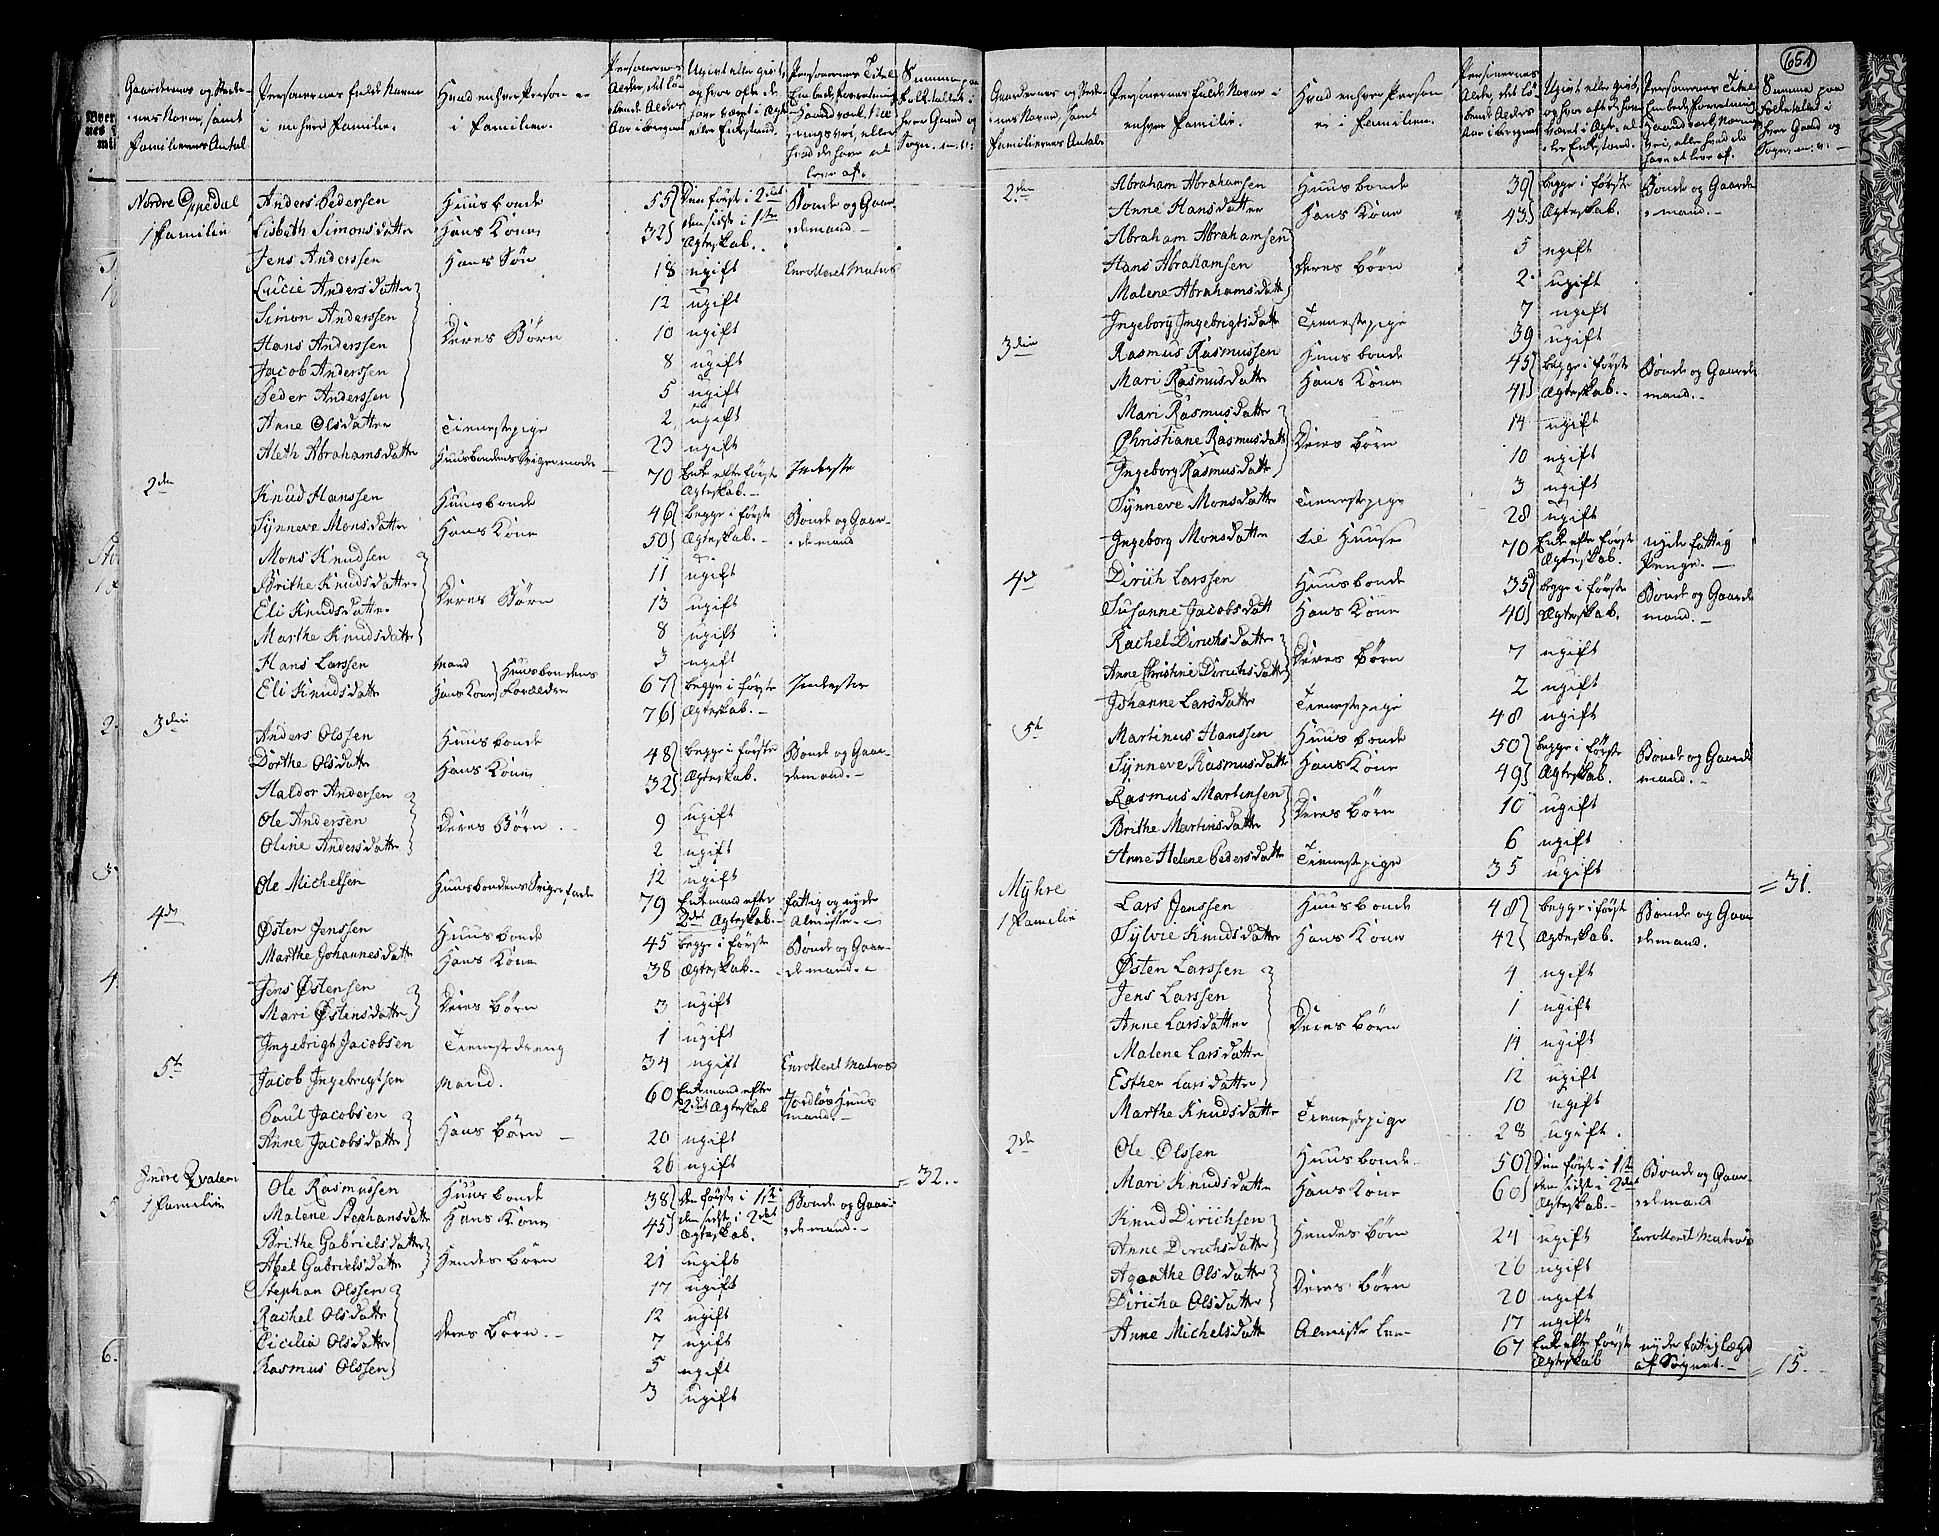 651
Gaardernes og Stedernes Navne, samt Familiernes Antal
Personernes fulde Navne i enhver Familie.
Hvad enhver Person er i Familien.
Personernes Alder, det løbende Alders Aar iberegnet
Ugivt eller givt, og hvor ofte de have været i Ægte- eller Enkestand.
Personernes Titel, Embede, Forretning, Haandværk, Næringsvei, eller hvad de have at leve af.
Summen paa Folketallet i hver Gaard og Sogn
Nordre Oppedal Anders Pedersen Huusbonde 55 Den første i 2det Bonde og Gaar-
1 Familie Lisbeth Simonsdatter Hans Kone 32 den sidste i 1ste Ægteskab. demand
Jens Anderssen Hans Søn 18 ugift Enrolleret Matros
Lucie Andersdatter 12 ugift
Simon Anderssen 10 ugift
Hans Anderssen Deres Børn 8 ugift
Jacob Anderssen 5 ugift
Peder Anderssen 2 ugift
Anne Olsdatter Tienestepige 23 ugift
Aleth Abrahamsdatter Huusbondens Svigermoder 70 Enke efter første Ægteskab. Inderste
2den Knud Hanssen Huusbonde 46 begge i første Bonde og Gaar-
Synneve Monsdatter Hans Kone 50 Ægteskab. demand
Mons Knudsen 11 ugift
Brithe Knudsdatter Deres Børn 13 ugift
Eli Knudsdatter 8 ugift
Marthe Knudsdatter 3 ugift
Hans Larssen Mand Huusbondens 67 begge i første Inderster
Eli Knudsdatter Hans Kone Forældre 76 Ægteskab.
3die Anders Olssen Huusbonde 48 begge i første Bonde og Gaar-
Dorthe Olsdatter Hans Kone 32 Ægteskab. demand.
Haldor Andersen 9 ugift
Ole Andersen Deres Børn 2 ugift
Oline Andersdatter 12 ugift
Ole Michelsen Huusbondens Svigerfader 79 Enkemand efter 2det Ægteskab. fattig og nyder Almisse.
4de Østen Jenssen Huusbonde 45 begge i første Bonde og Gaar-
Marthe Johannesdatter Hans Kone 38 Ægteskab. demand.
Jens Østensen Deres Børn 3 ugift
Mari Østensdatter 1 ugift
Ingebrigt Jacobsen Tienestedreng 34 ugift Enrolleret Matros
5te Jacob Ingebrigtsen Mand. 60 Enkemand efter 2det Ægteskab Jordløs Huusmand.
Poul Jacobsen Hans Børn 20 ugift
Anne Jacobsdatter 26 ugift
= 32.
Indre Qvalem Ole Rasmussen Huusbonde 38 den første i 1ste Bonde og Gaar-
1 Familie Malene Stephansdatter Hans Kone 45 den sidste i 2det Ægteskab. demand.
Brithe Gabrielsdatter Hendes Børn 21 ugift
Abel Gabrielsdatter 17 ugift
Stephan Olssen 12 ugift
Rachel Olsdatter 7 ugift
Cicilia Olsdatter deres Børn. 5 ugift
Rasmus Olssen 3 ugift
Gaardernes og Stedernes Navne, samt Familiernes Antal
Personernes fulde Navne i enhver Familie.
Hvad enhver Person er i Familien.
Personernes Alder, det løbende Alders Aar iberegnet
Ugivt eller givt, og hvor ofte de have været i Ægte- eller Enkestand.
Personernes Titel, Embede, Forretning, Haandværk, Næringsvei, eller hvad de have at leve af.
Summen paa Folketallet i hver Gaard og Sogn
2den Abraham Abrahamsen Huusbonde 39 begge i første Bonde og Gaarde
Anne Hansdatter Hans Kone 43 Ægteskab. mand.
Abraham Abrahamsen 5 ugift
Hans Abrahamsen deres Børn 2 ugift
Malene Abrahamsdatter 7 ugift
Ingeborg Ingebrigtsdatt Tienestepige 39 ugift
3die Rasmus Rasmussen Huusbonde 45 begge i første Bonde og Gaarde
Mari Rasmusdatter Hans Kone 41 Ægteskab. mand.
Mari Rasmusdatter 14 ugift
Christiane Rasmusdatt Deres Børn 10 ugift
Ingeborg Rasmusdatt 3 ugift
Synneve Monsdatter Tienestepige 28 ugift
Ingeborg Monsdatter til Huuse 70 Enke efter første Ægteskab. nyder fattig Penge.
4de Dirich Larssen Huusbonde 35 begge i første Bonde og Gaarde
Susanne Jacobsdatt Hans Kone 40 Ægteskab. mand.
Rachel Dirichsdatter Deres Børn 7 ugift
Anne Christine Dirichsdatter 2 ugift
Johanne Larsdatter Tienestepige 48 ugift
5te Martinus Hanssen Huusbonde 50 begge i første Bonde og Gaarde
Synneve Rasmusdatter Hans Kone 49 Ægteskab. mand.
Rasmus Martinsen Deres Børn 10 ugift
Brithe Martinsdatter 6 ugift
Anne Helene Pedersdatter Tienestepige 35 ugift
= 31.
Myhre Lars Jenssen Huusbonde 48 begge i første Bonde og Gaar
1 Familie Sylvie Knudsdatter Hans Kone 42 Ægteskab. demand.
Østen Larssen 4 ugift
Jens Larssen 1 ugift
Anne Larsdatter Deres Børn 14 ugift
Malene Larsdatter 12 ugift
Esther Larsdatter 10 ugift
Marthe Knudsdatter Tienestepige 28 ugift.
2de Ole Olssen Huusbonde 50 Den første i 1ste Bonde og Gaar-
Mari Knudsdatter Hans Kone 60 den sidste i 2det Ægteskab. demand
Knud Dirichsen Hendes Børn 24 ugift Enrolleret Matros
Anne Dirichsdatter 26 ugift
Agaathe Olsdatter Deres Børn 20 ugift
Diricha Olsdatter 17 ugift
Anne Michelsdatter Almisse Lem 67 Enke efter første Ægteskab nyder fattiglægd af Sognet.
= 15.